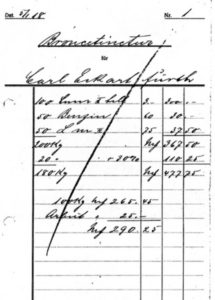 Dat. 5/1.18 Nr. 1
Broncetinctur
für
Carl Eckart, Fürth
100 2.- 200.-
50 Benzin 60 30.-
50 75 37.50
200 Kg Mrk 267.50
20% 110.25
180 Kg Mrk 477.75
100 Kg Mrk 265.45
Arbeit 25.-
Mrk 290.25